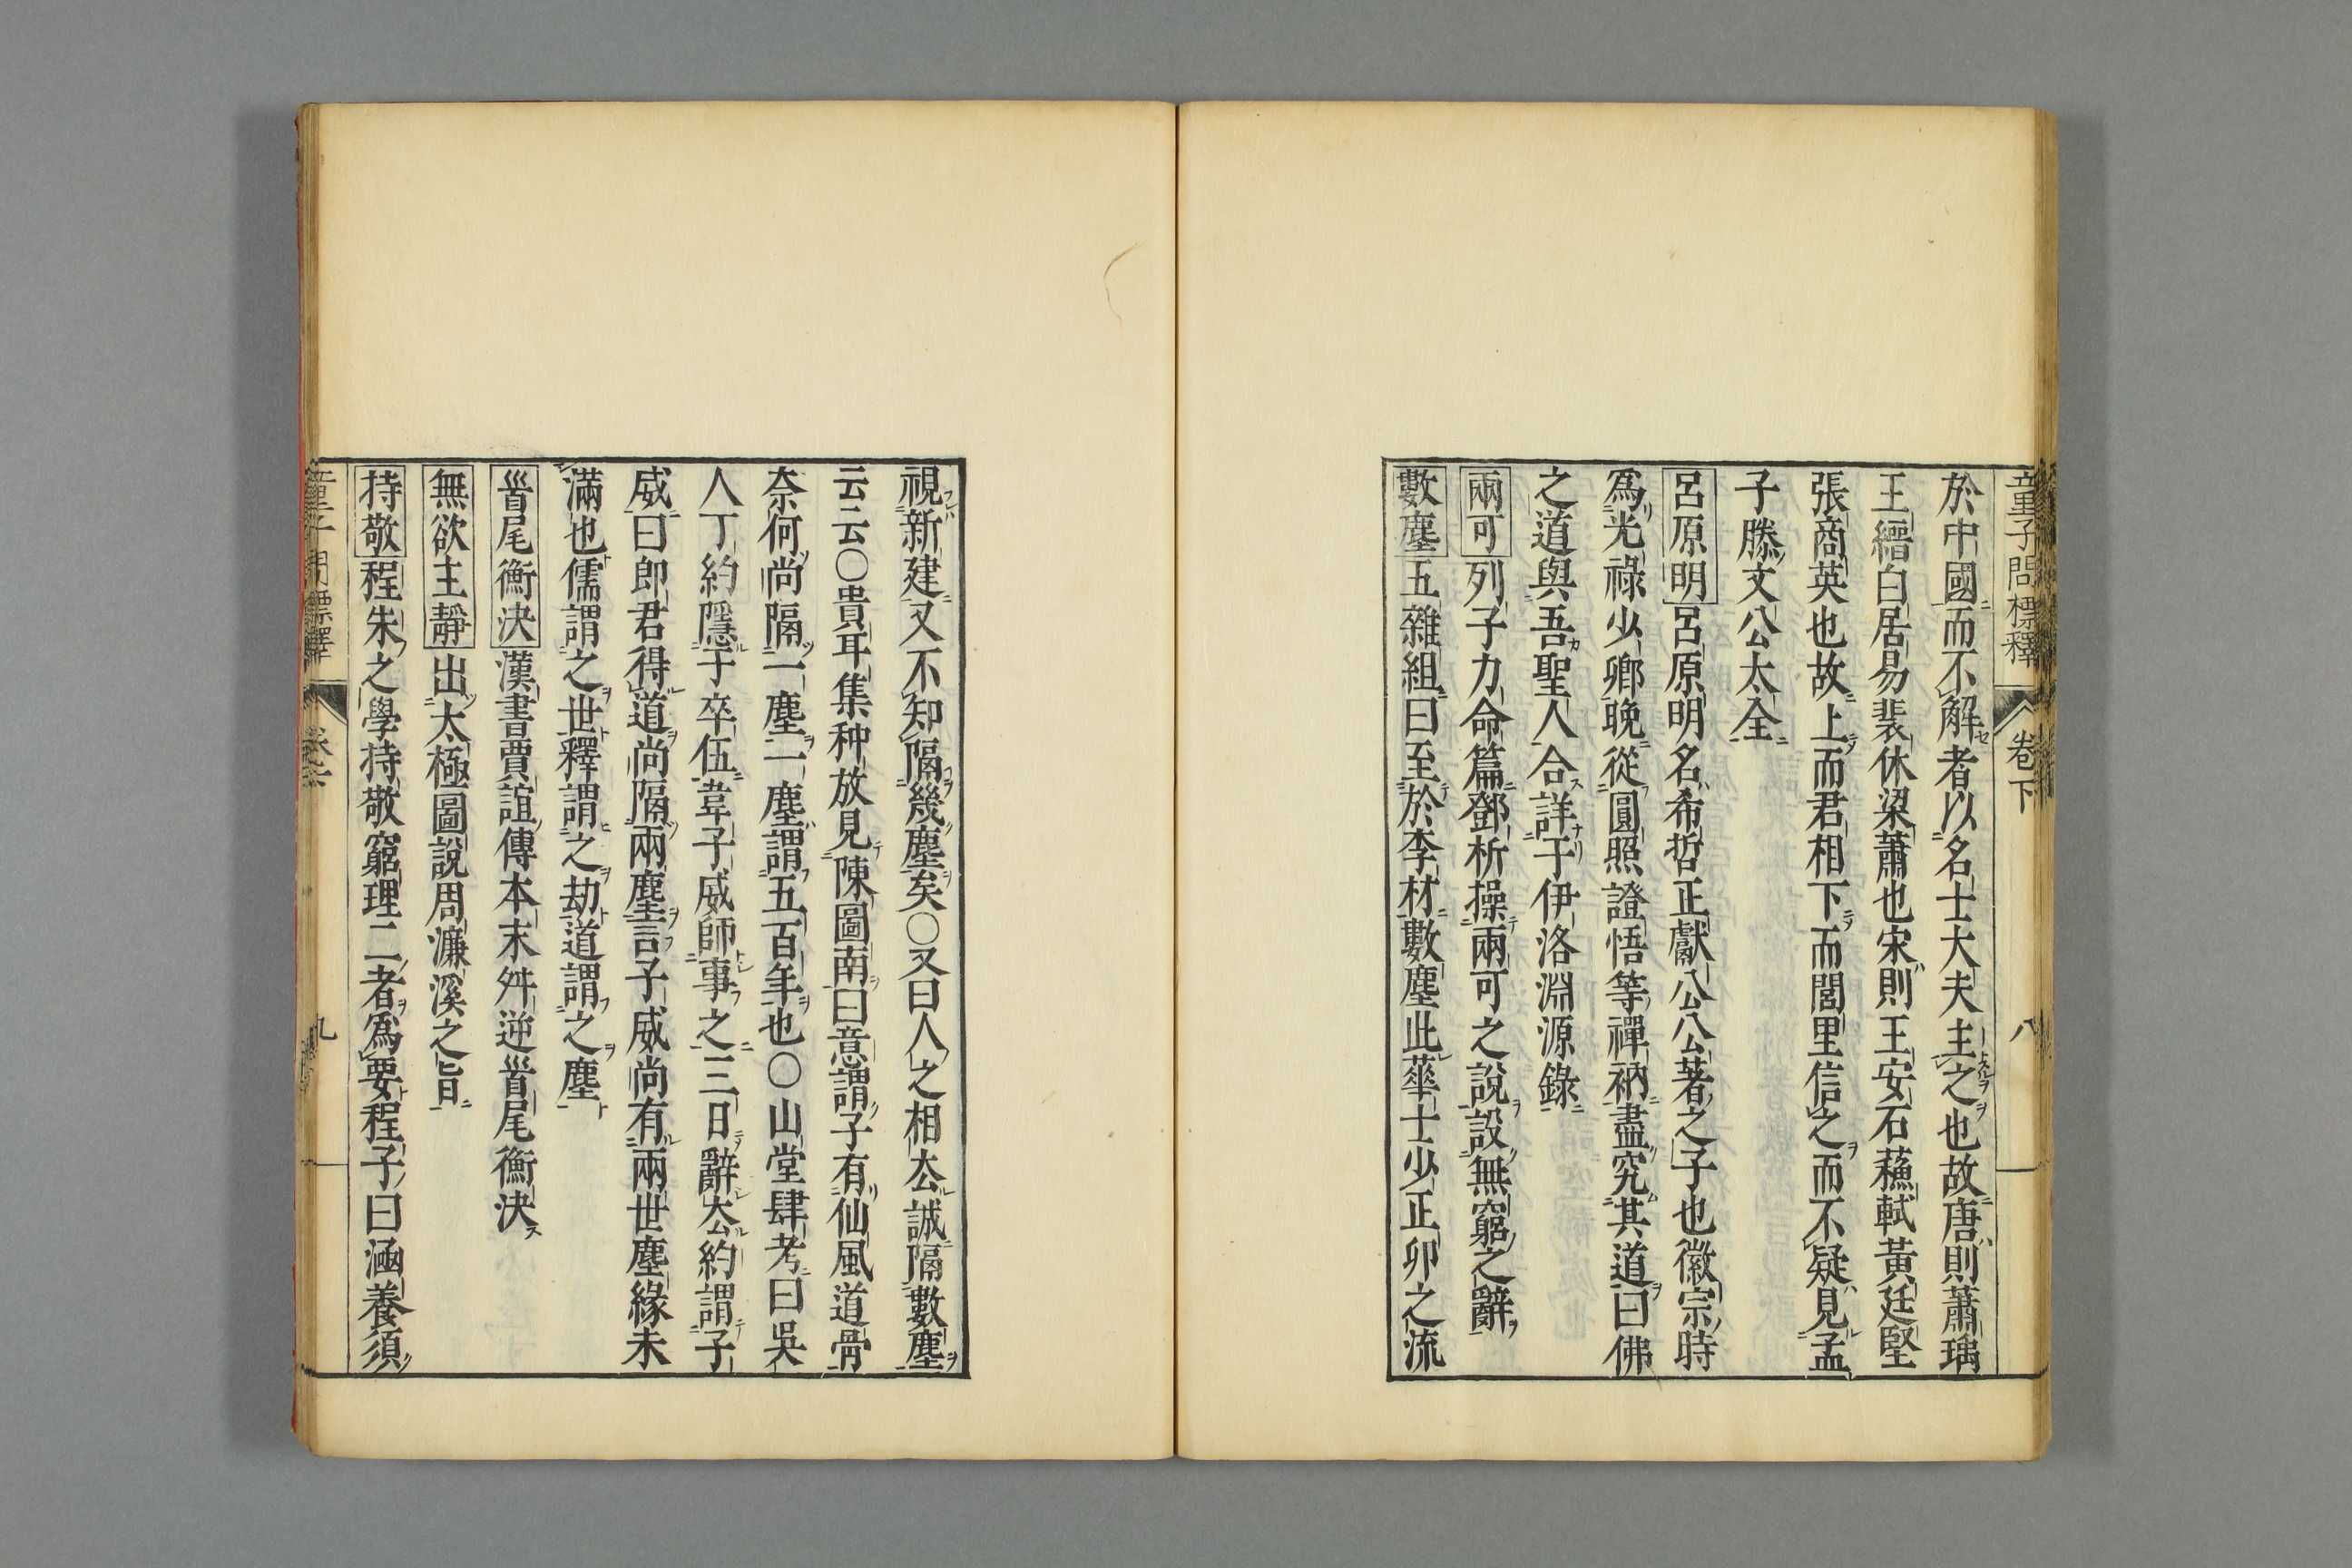 童子問標釋 卷下 八
於中國而不解者以名士大夫主之也故唐則蕭瑀
王縉白居易裴休梁蕭也宋則王安石蘓軾黃廷堅
張商英也故上而君相下而閭里信之而不疑見孟
子滕文公太全
呂原明呂原明名希哲正獻公公著之子也徽宗時
爲光祿少卿晚從圓照證悟等禪衲盡究其道曰佛
之道與吾聖人合詳于伊洛淵源錄
兩可列子力命篇鄧析操兩可之說設無窮之辭
數塵五雜組曰至於李材數塵此蕐士少正卯之流
視新建又不知隔幾塵矣○又曰人之相厺誠隔數塵
云云○貴耳集种放見陳圖南曰意謂子有仙風道骨
奈何尚隔一塵一塵謂五百年也○山堂肆考曰吳
人丁約隱于卒伍韋子威師事之三日辭厺約謂子
威曰郎君得道尚隔兩塵言子威尚有兩世塵緣未
滿也儒謂之世釋謂之劫道謂之塵
𩠐尾衡決漢書賈誼傳本末舛逆𩠐尾衡決
無欲主靜出太極圖說周濂溪之旨
持敬程朱之學持敬窮理二者爲要程子曰涵養須
童子問標釋 卷下 九